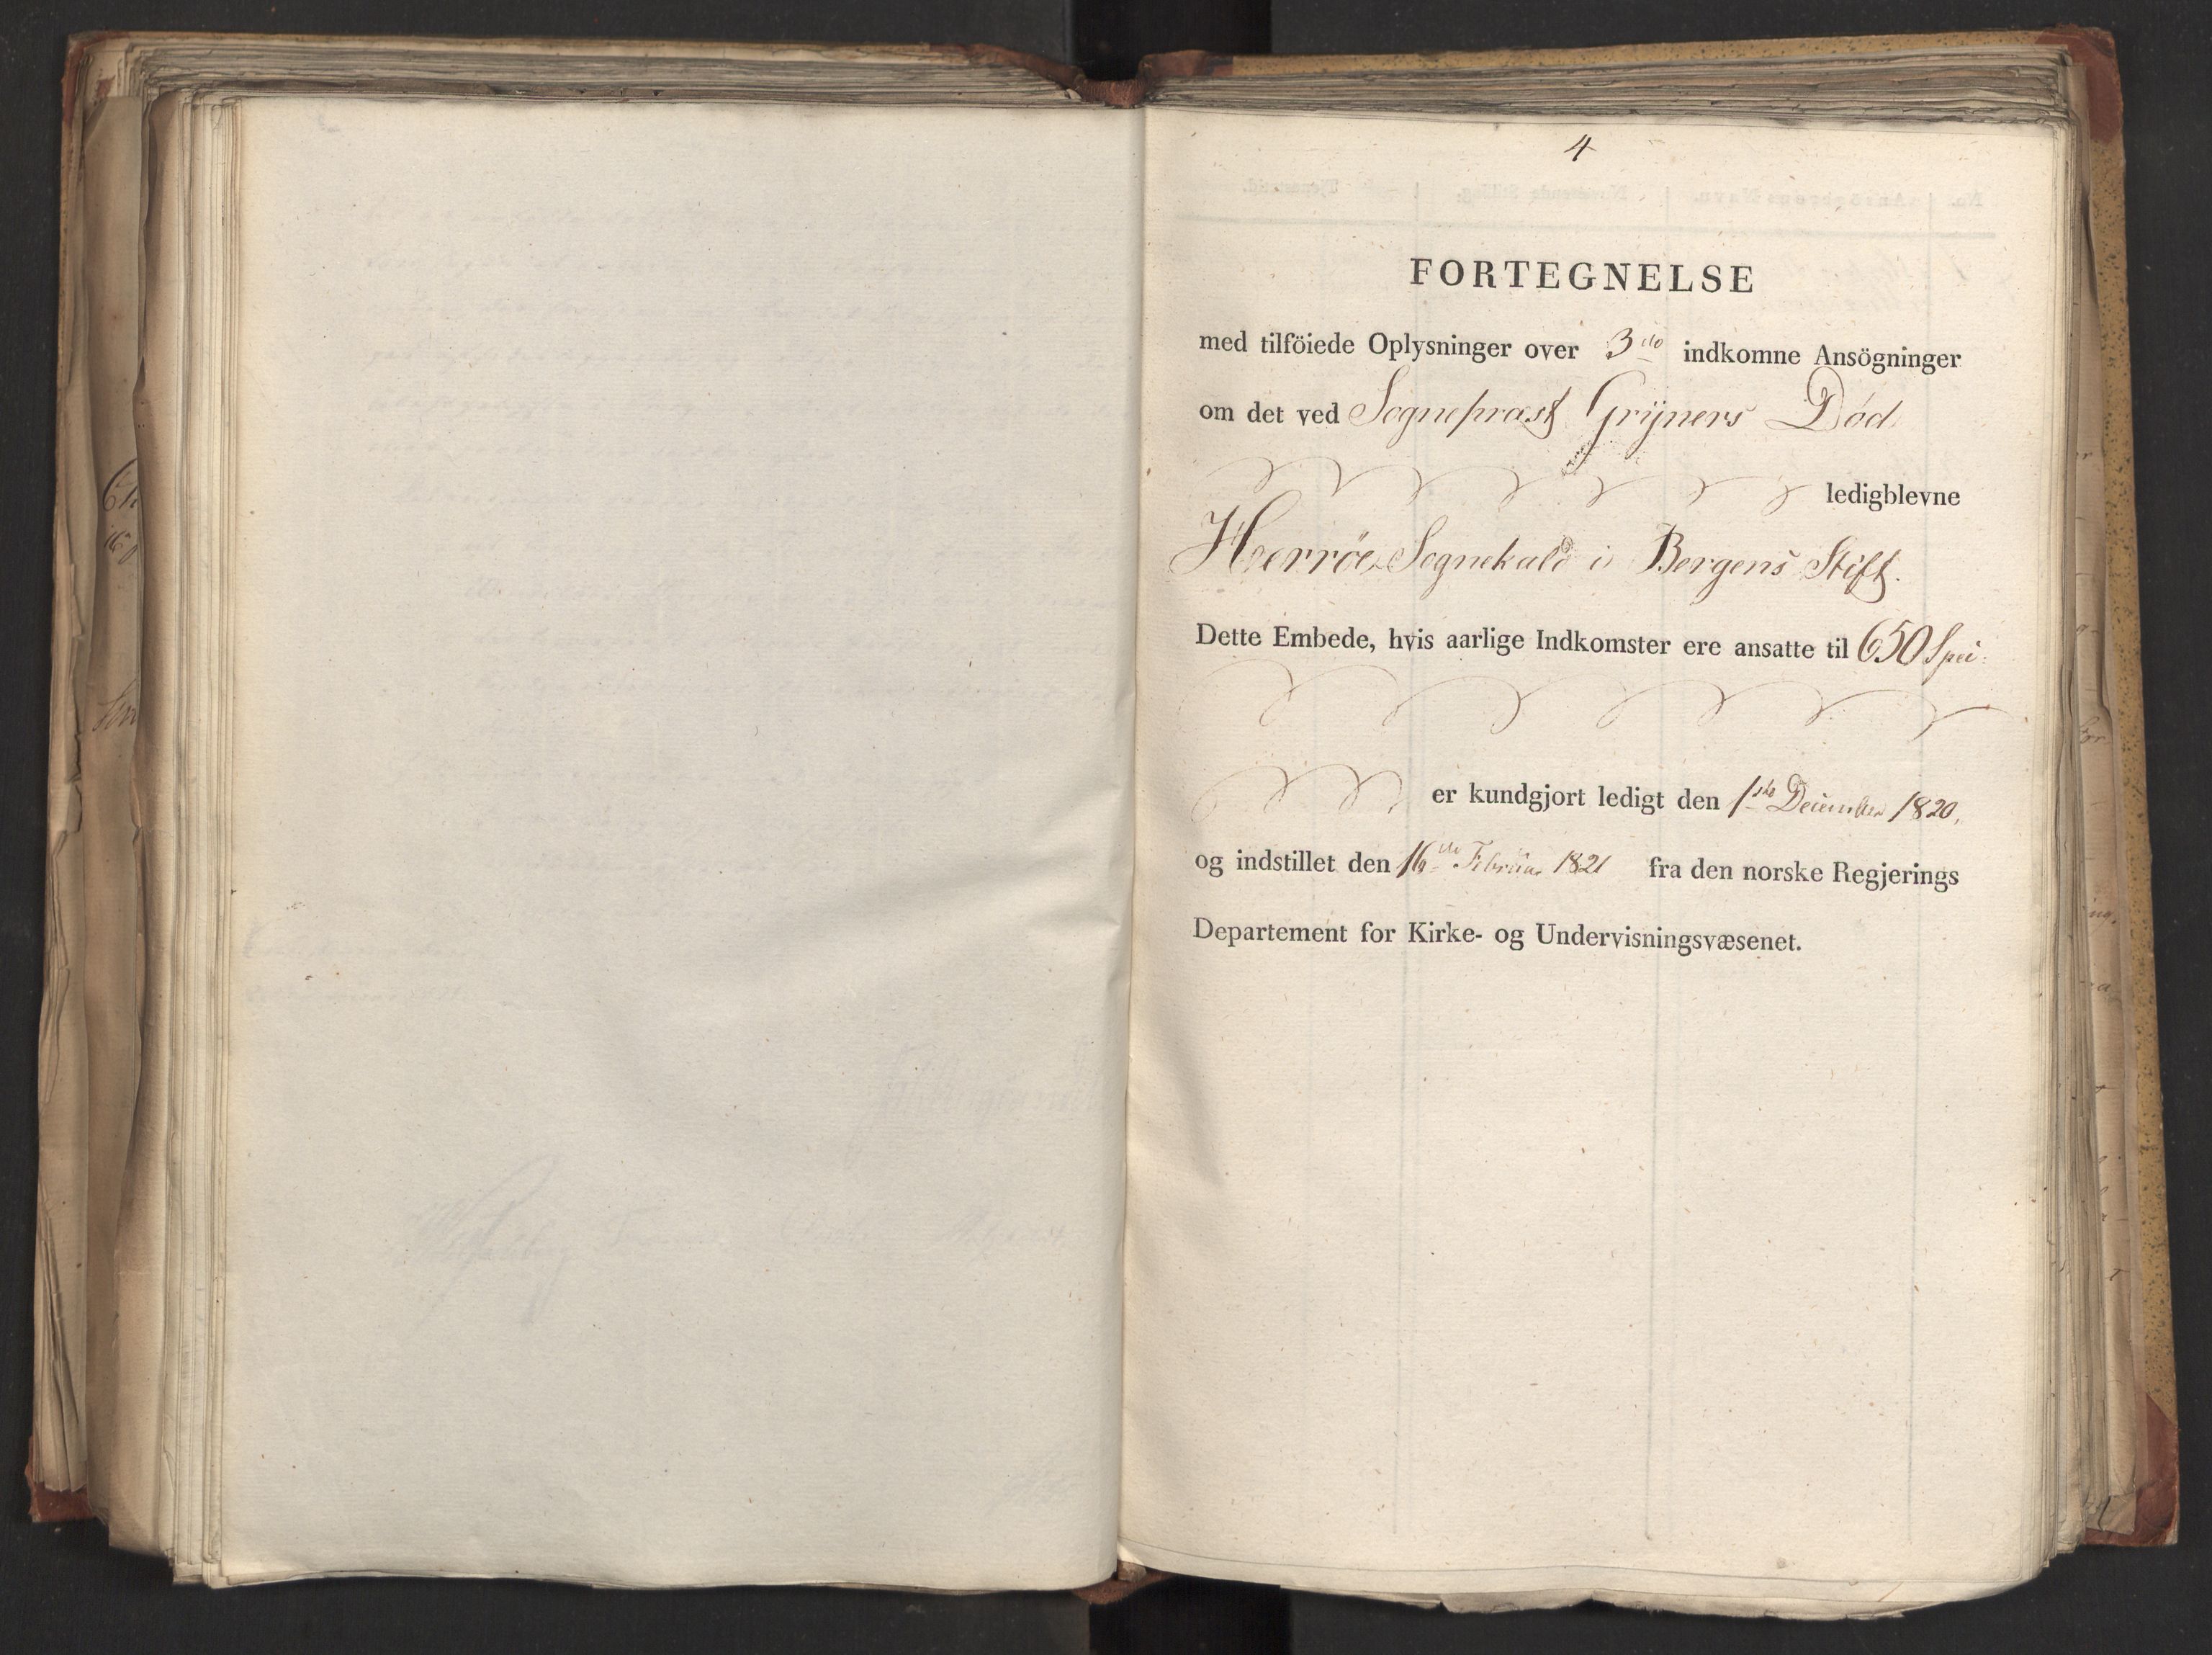 4
FORTEGNELSE
med tilföiede Oplysninger over 3de indkomne Ansögninger
om det ved Sognepræst Gryners Död
ledigblevne
Herröe Sognekald i Bergens Stift.
Dette Embede, hvis aarlige Indkomster ere ansatte til 650 Spei:
er kundgjort ledigt den 1ste December 1820,
og indstillet den 16de Februar 1821 fra den norske Regjerings
Departement for Kirke- og Undervisningsvæsenet.